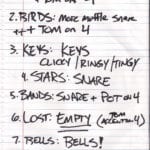 + TOM ON 4
2. BIRDS: MORE SHUFFLE SNARE
++ + TOM ON 4
3. KEYS: KEYS
CLICKY / RINGSY / TINGSY
4. STARS: SNARE
5. BANDS: SNARE + POT ON 4
6. LOST: EMPTY (TOM
ACCENT ON 4)
7. BELLS: BELLS!